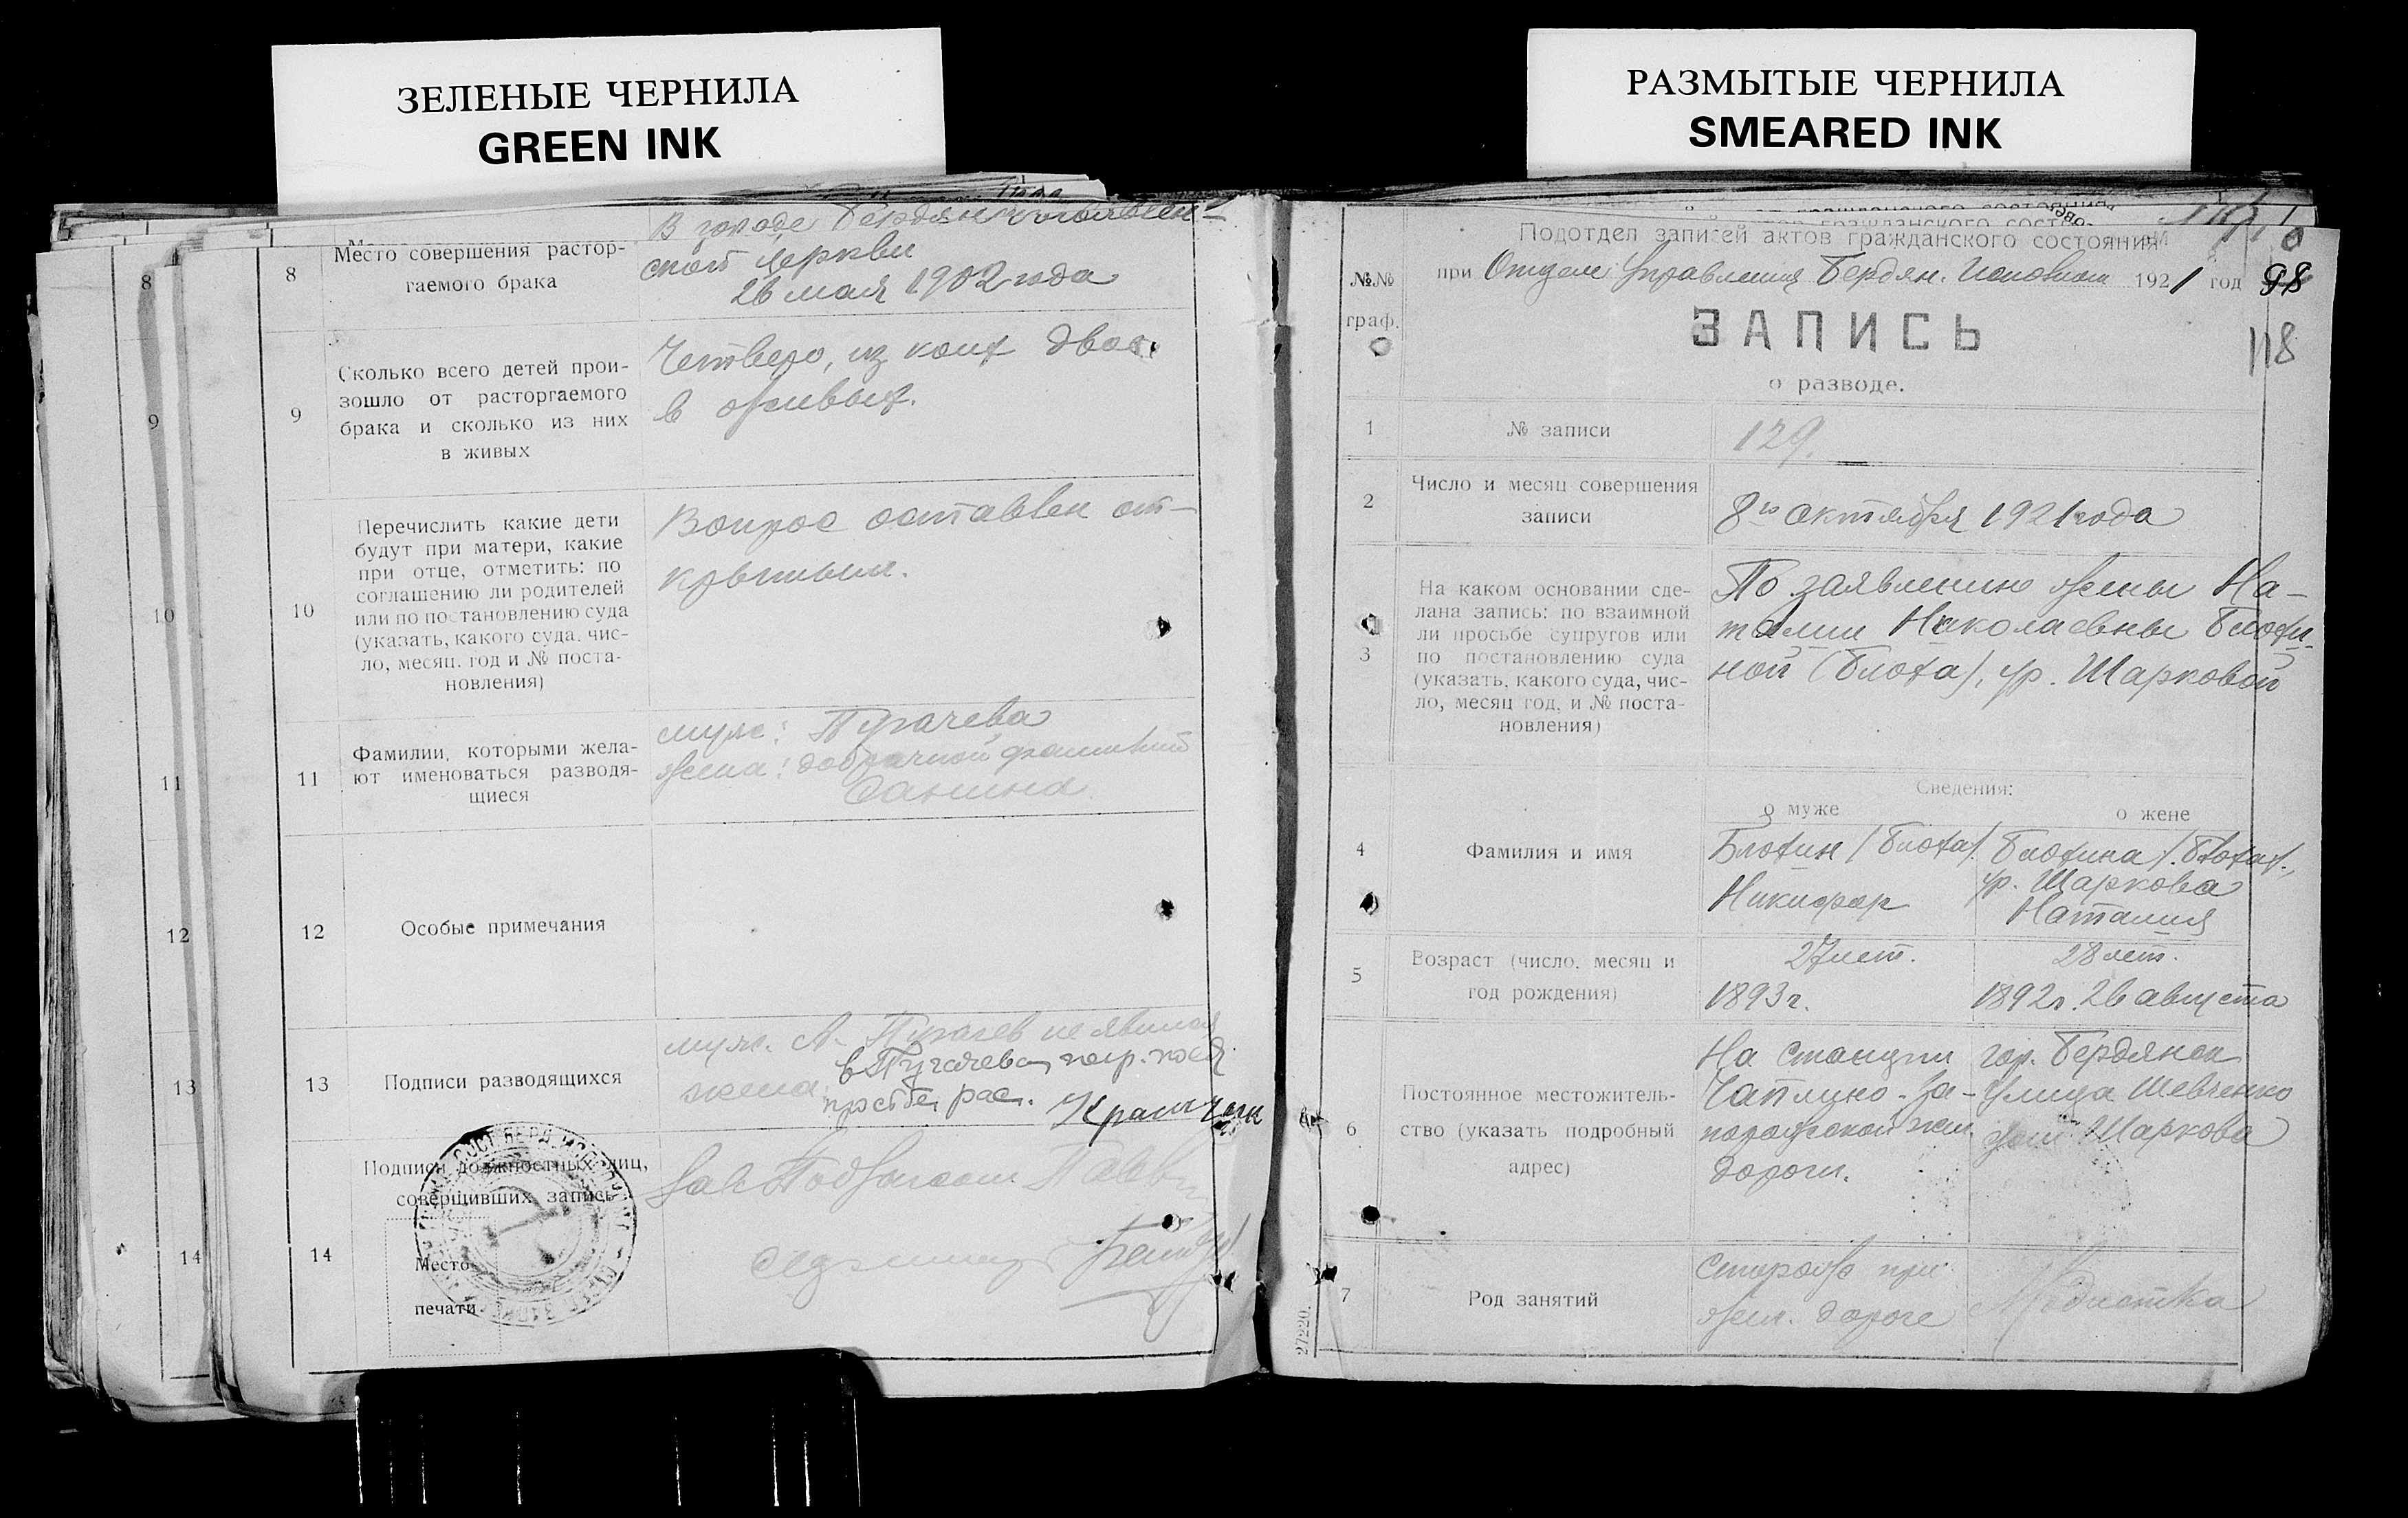 ЗЕЛЕНЫЕ ЧЕРНИЛА
GREEN INK
8
9
10
11
12
13
14
8
Место совершения растор-
гаемого брака
В городе Бердян
ской церкви
26 мая 1902 года
9
Сколько всего детей прои-
зошло от расторгаемого
брака и сколько из них
в живых
Четверо, из коих двое
в живых.
10
Перечислить какие дети
будут при матери, какие
при отце, отметить: по
соглашению ли родителей
или по постановлению суда
(указать, какого суда, чис-
ло, месяц, год и № поста-
новления)
Вопрос оставлен от-
крытым.
11
Фамилии, которыми жела-
ют именоваться разводя-
щиеся
муж: Пугачева
жена: добрачной фамилией
Санина
12
Особые примечания
13
Подписи разводящихся
муж. А. Пугачев не явился
жена:
14
Подписи должностных лиц,
совершивших запись
Место
печати
РАЗМЫТЫЕ ЧЕРНИЛА
SMEARED INK
Подотдел записей актов гражданского состояния
при Отделе Управления Бердян. Исполком 1921 год
98
118
№№
граф.
ЗАПИСЬ
о разводе.
1
№ записи
129.
2
Число и месяц совершения
записи
8го октября 1921 года
3
На каком основании сде-
лана запись: по взаимной
ли просьбе супругов или
по постановлению суда
(указать, какого суда, чис-
ло, месяц год, и № поста-
новления)
По заявлению жены На-
талии Николаевны Блохи-
ной (Блоха), ур. Шарковой
Сведения:
о муже
о жене
4
Фамилия и имя
Блохин /Блоха/.
Никифор
Блохина /.Блоха/.,
ур. Шаркова
Наталия
5
Возраст (число, месяц и
год рождения)
27 лет.
1893 г.
28 лет.
1892 г. 26 августа
6
Постоянное местожитель-
ство (указать подробный
адрес)
На станции
Чаплино - За-
порожской жел.
дороги.
гор. Бердянск
Улица Шевченко
дом Шаркова
7
Род занятий
Сторож при
жел. дороге
Модистка
27220.